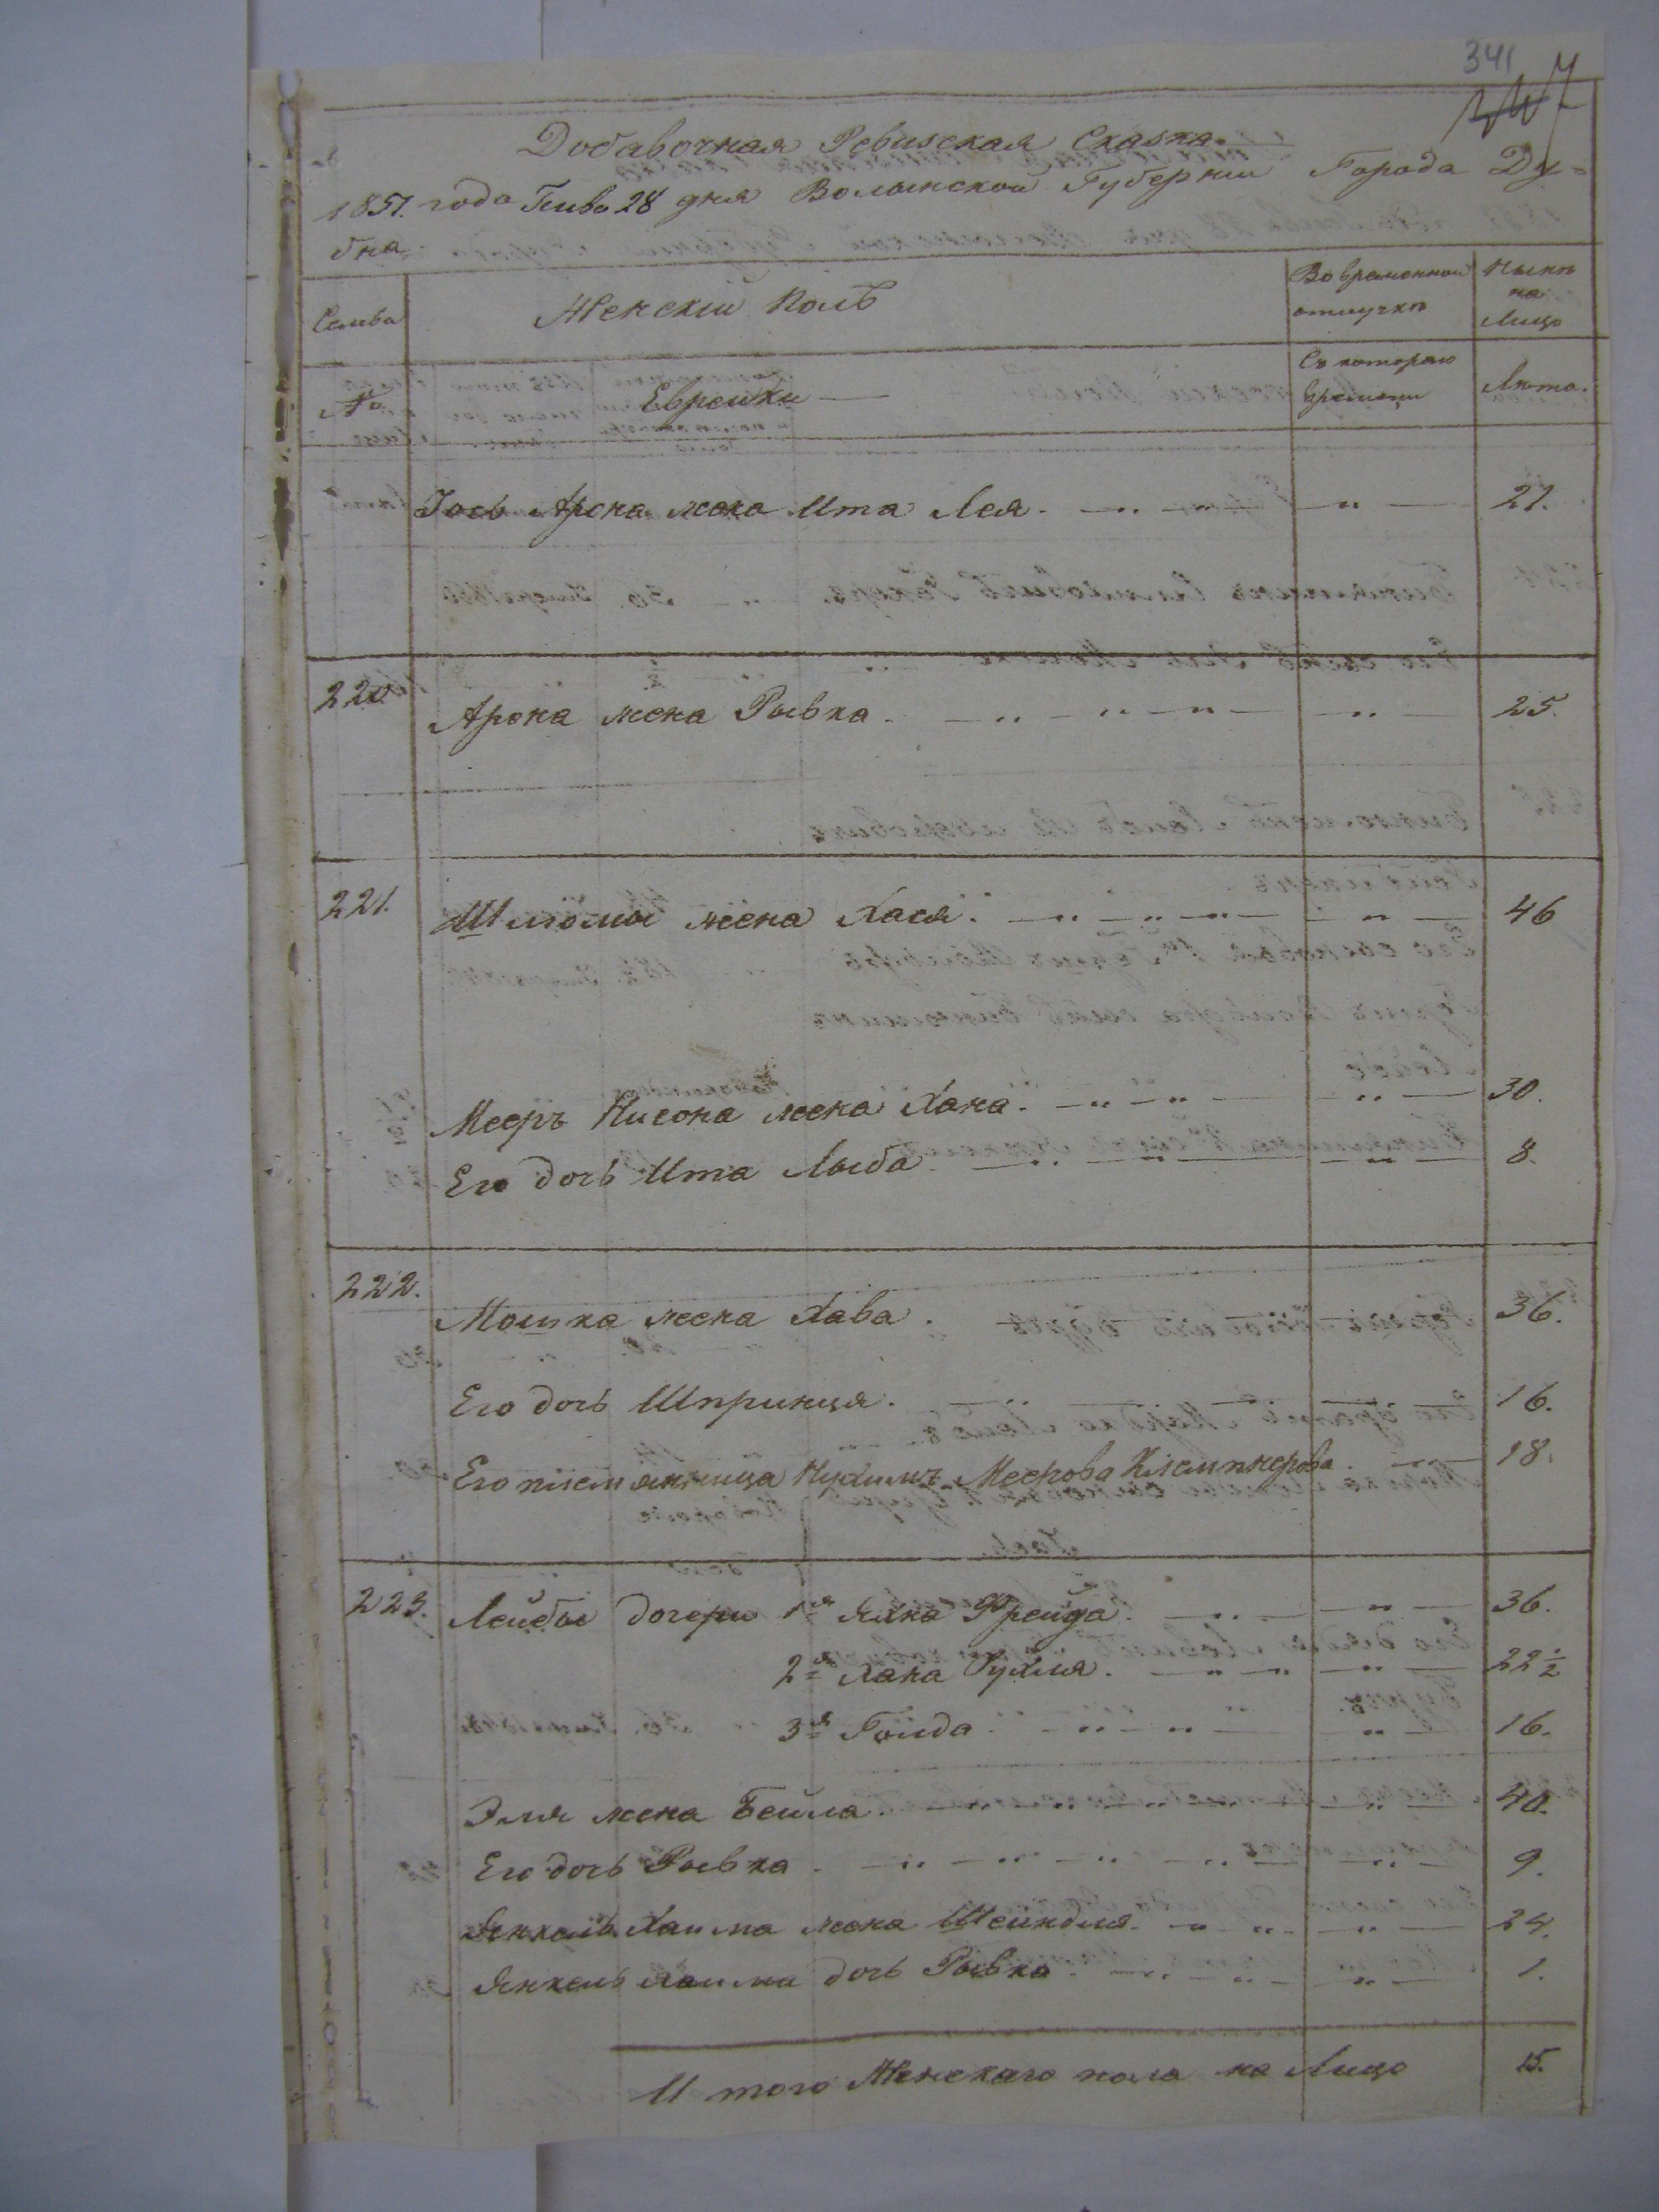 341
Добавочная Ревизская Сказка.
1851. года Генва 28 дня Волынской Губернии Города Ду=
бна
Семьи Женский Полъ Во временной отлучке Ныне на Лицо
№ Еврейки — Съ котораго времени Лета.
Иось Арона жена Ита Лея. — „ — „ — „ — 21.
220. Арона жена Рывка. — „ — „ — „ — „ — 25.
221. Шлiомы жена Хася. — „ — „ — „ — „ — 46
Мееръ Нисона жена Хана. — „ — „ — „ — 30.
Его дочь Ита Лыба. — „ — „ — „ — 8.
222. Мошка жена Хава. 36.
Его дочь Шпринця. 16.
Его племянница Нухимъ Меерова Клемпнерова. — „ — 18.
223. Лейбы дочери 1я Яхна Фрейда. — „ — „ — 36.
2я Хана Рухля. — „ — „ — „ — 22½
3я Голда. — „ — „ — „ — 16.
Эля жена Бейла. — „ — „ — „ — 40.
Его дочь Рывка. — „ — „ — „ — „ — „ — 9.
Янкель Хаима жена Шейндля. — „ — „ — „ — 24.
Янкель Хаима дочь Рывка. — „ — „ — „ — 1.
И того Женскаго пола на Лицо 15.